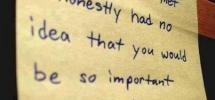 met
honestly had no
idea that you would
be so important